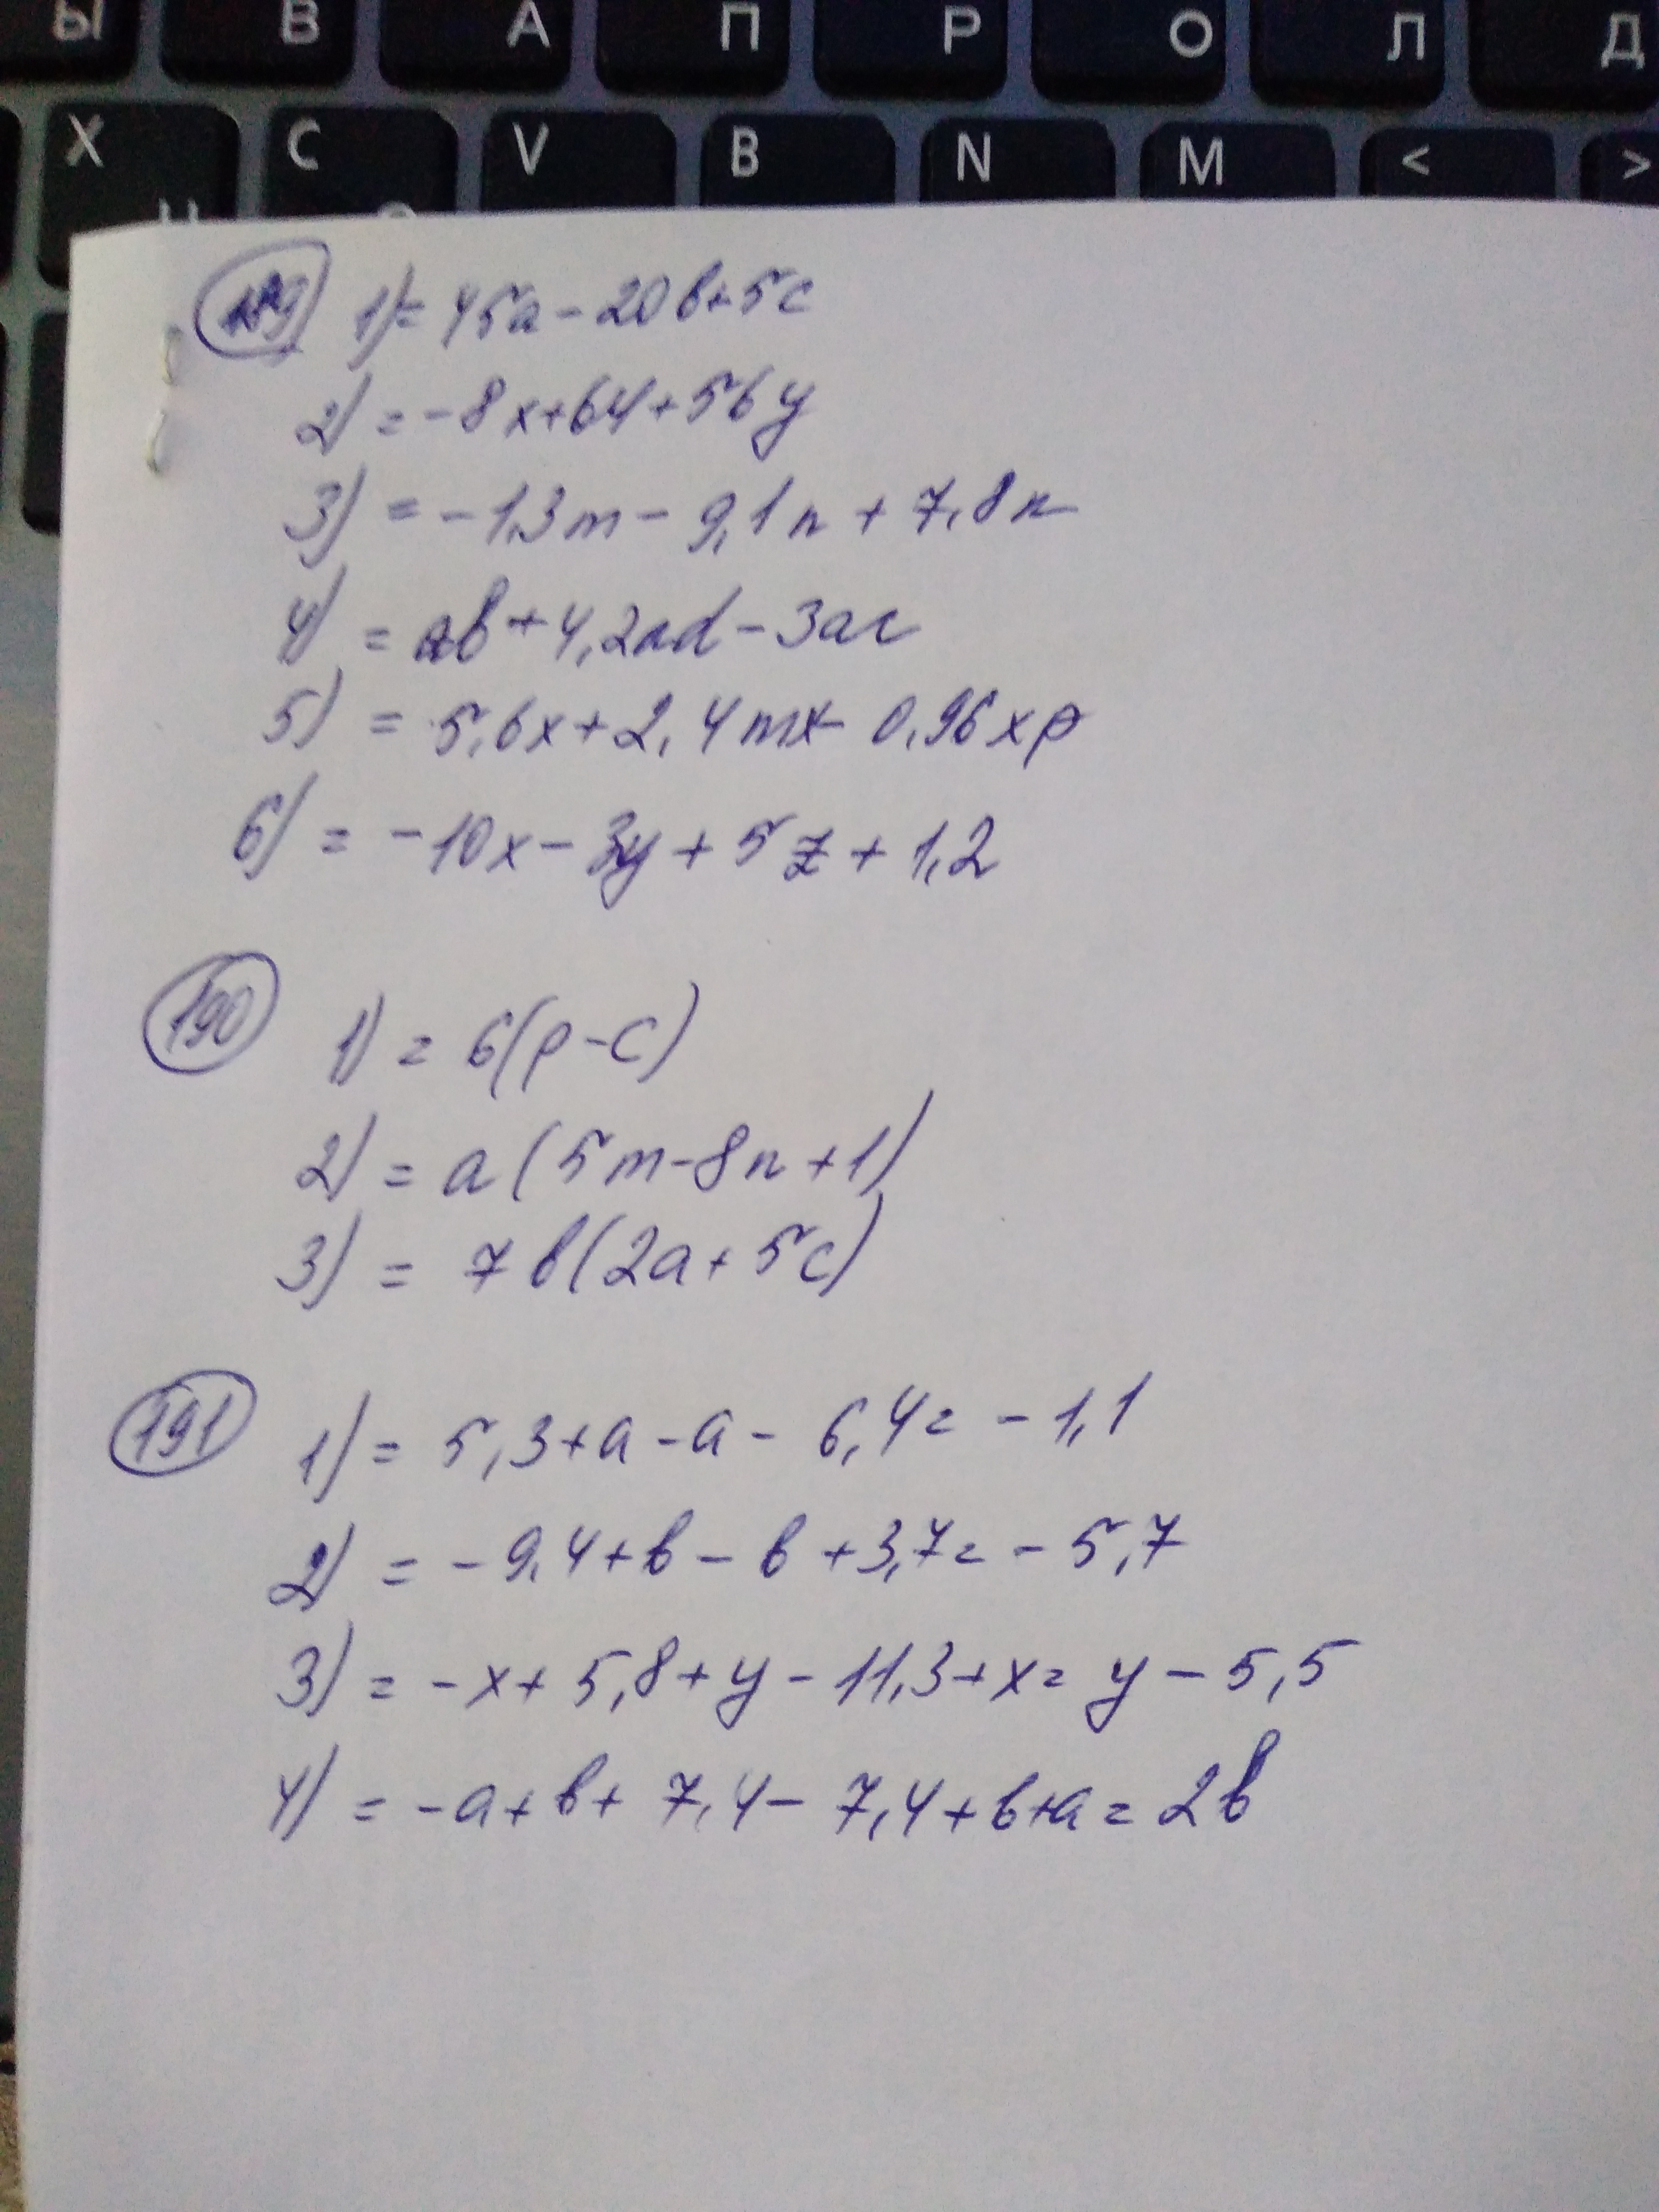 Ы В А П Р О Л Д
X C V B N M < >
189 1) = 45a - 20b + 5c
2) = -8x + 64 + 56y
3) = -1,3m - 9,1n + 7,8k
4) = ab + 4,2ad - 3ac
5) = 5,6x + 2,4mx - 0,96xp
6) = -10x - 3y + 5z + 1,2
190 1) = 6(p - c)
2) = a(5m - 8n + 1)
3) = 7b(2a + 5c)
191 1) = 5,3 + a - a - 6,4 = -1,1
2) = -9,4 + b - b + 3,7 = -5,7
3) = -x + 5,8 + y - 11,3 + x = y - 5,5
4) = -a + b + 7,4 - 7,4 + b + a = 2b